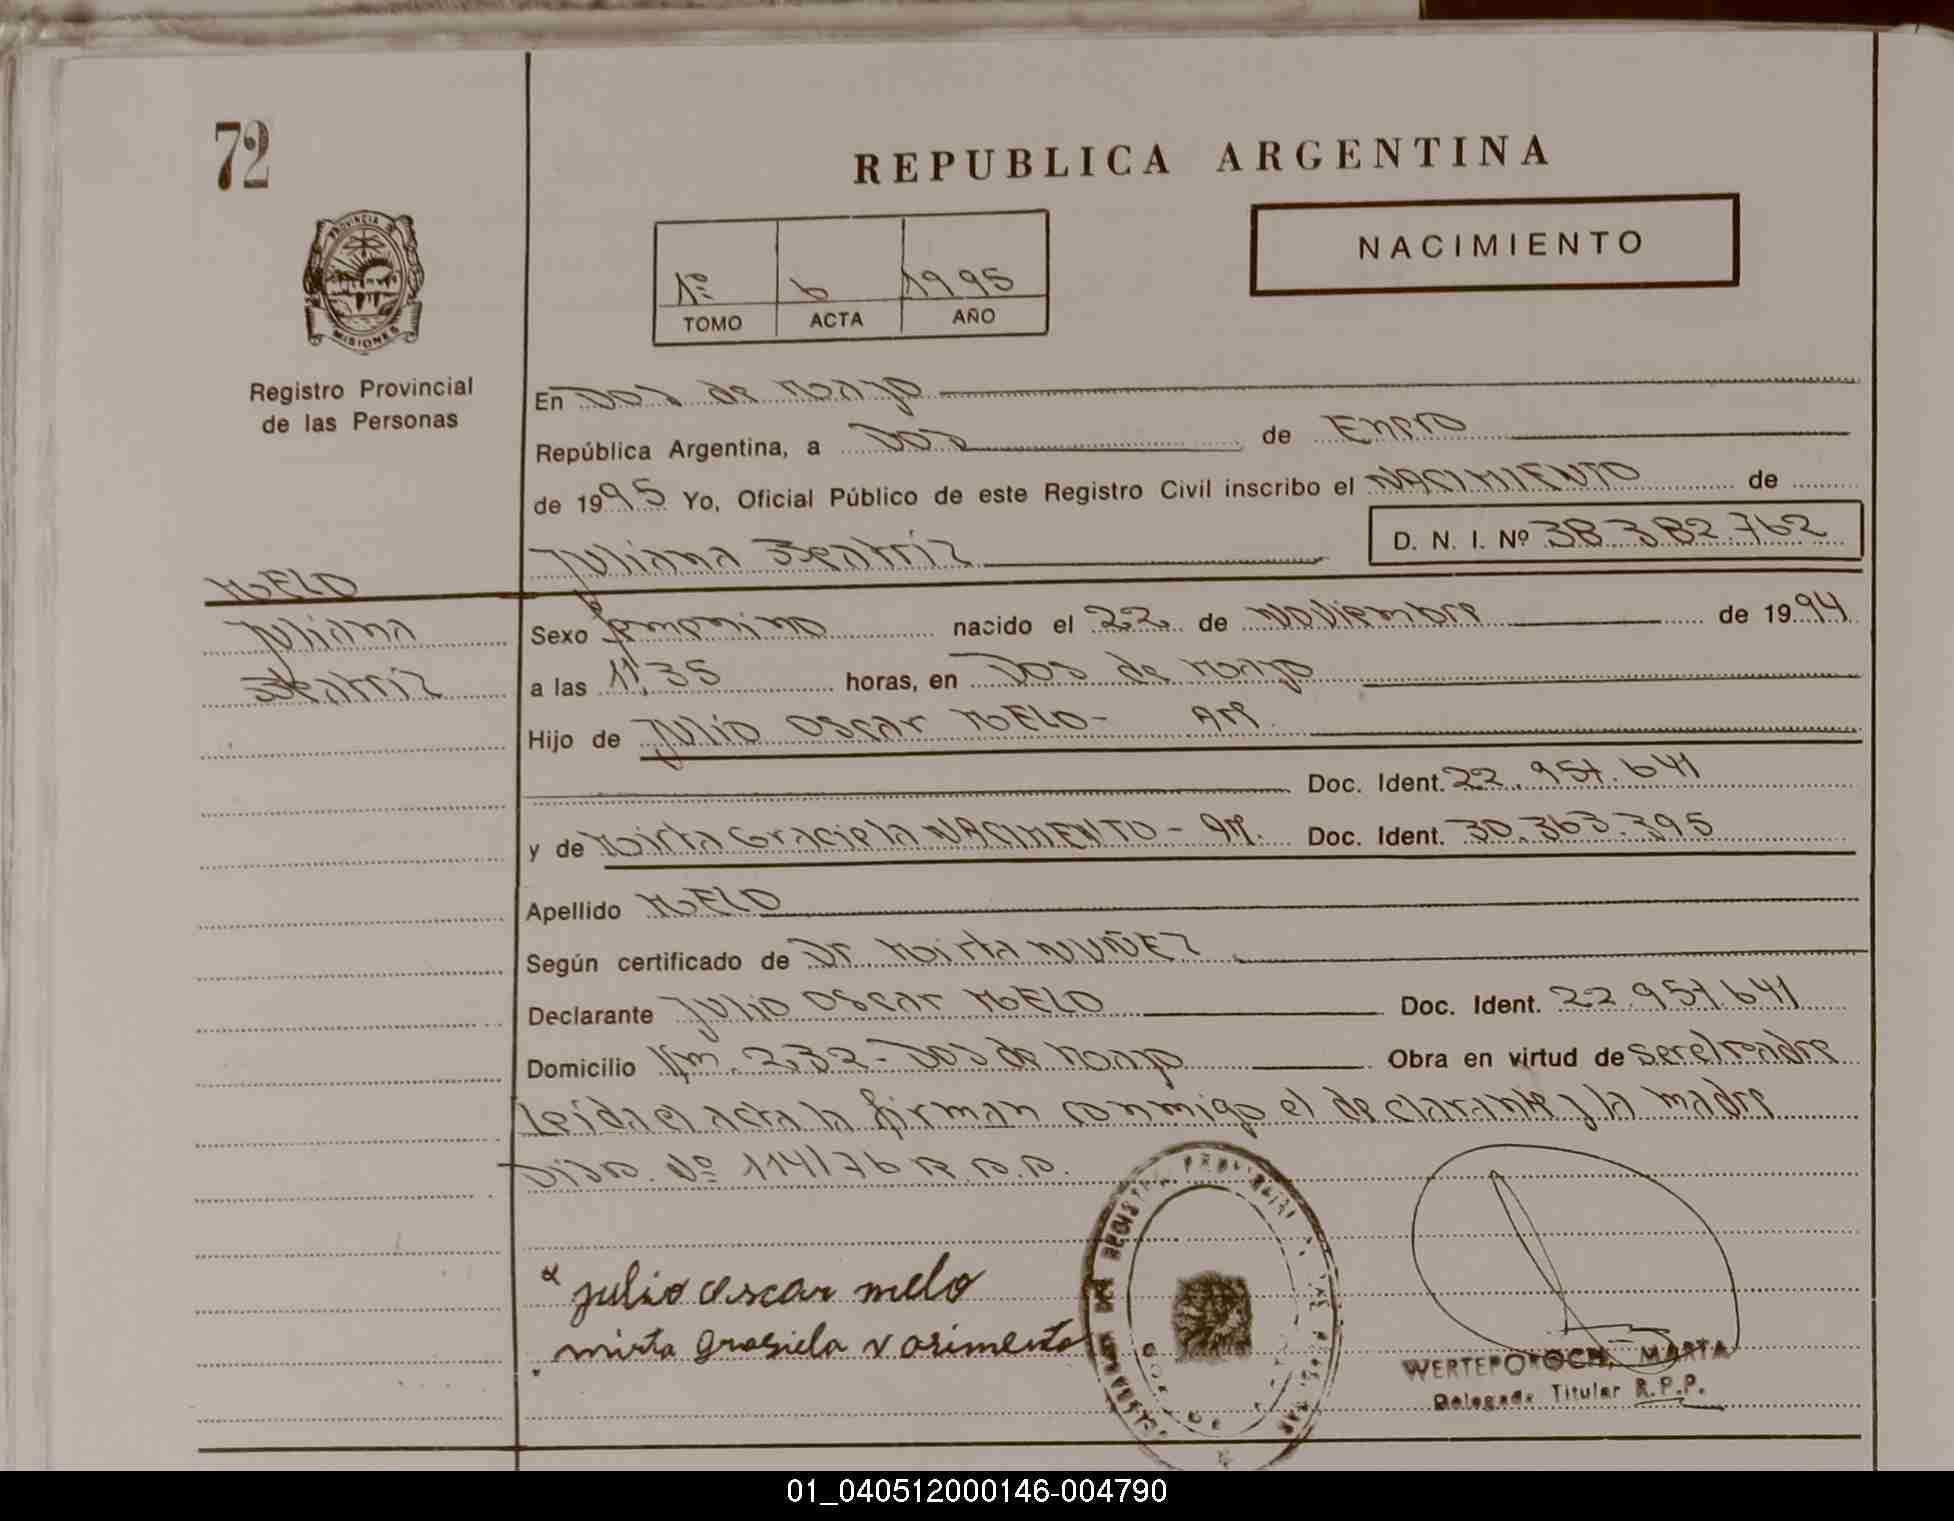 72
REPUBLICA ARGENTINA
NACIMIENTO
PROVINCIA DE
MISIONES
Registro Provincial
de las Personas
1º 6 1995
TOMO ACTA AÑO
En Dos de Mayo
República Argentina, a Dos de Enero
de 1995 Yo, Oficial Público de este Registro Civil inscribo el NACIMIENTO de
Juliana Beatriz D. N. I. Nº 38.382.762
MELO
Juliana
Beatriz
Sexo femenino nacido el 22 de Noviembre de 1994
a las 11,35 horas, en Dos de Mayo
Hijo de Julio Oscar MELO - Arg.
Doc. Ident. 22.951.641
y de Mirta Graciela NACIMENTO - Arg. Doc. Ident. 30.363.395
Apellido MELO
Según certificado de Dr Mirta NUÑEZ
Declarante Julio Oscar MELO Doc. Ident. 22.951.641
Domicilio Km. 232 - Dos de Mayo Obra en virtud de ser el padre
Leída el acta la firman conmigo el declarante y la madre
Disp. Nº 114/76 R.P.P.
julio oscar melo
mirta grasiela nasimento
WERTEPOROCH, MARTA
Delegada Titular R.P.P.
01_040512000146-004790